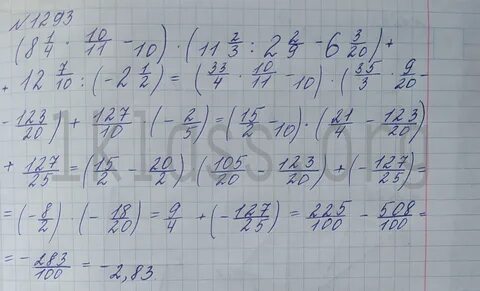 №1293
(8 1/4 · 10/11 - 10) · (11 2/3 : 2 2/9 - 6 3/20) +
+ 12 7/10 : (-2 1/2) = (33/4 · 10/11 - 10) · (35/3 · 9/20 -
- 123/20) + 127/10 · (-2/5) = (15/2 - 10) · (21/4 - 123/20)
+ 127/25 = (15/2 - 20/2) · (105/20 - 123/20) + (-127/25) =
= (-8/2) · (-18/20) = 9/4 + (-127/25) = 225/100 - 508/100 =
= -283/100 = -2,83
1klass.org